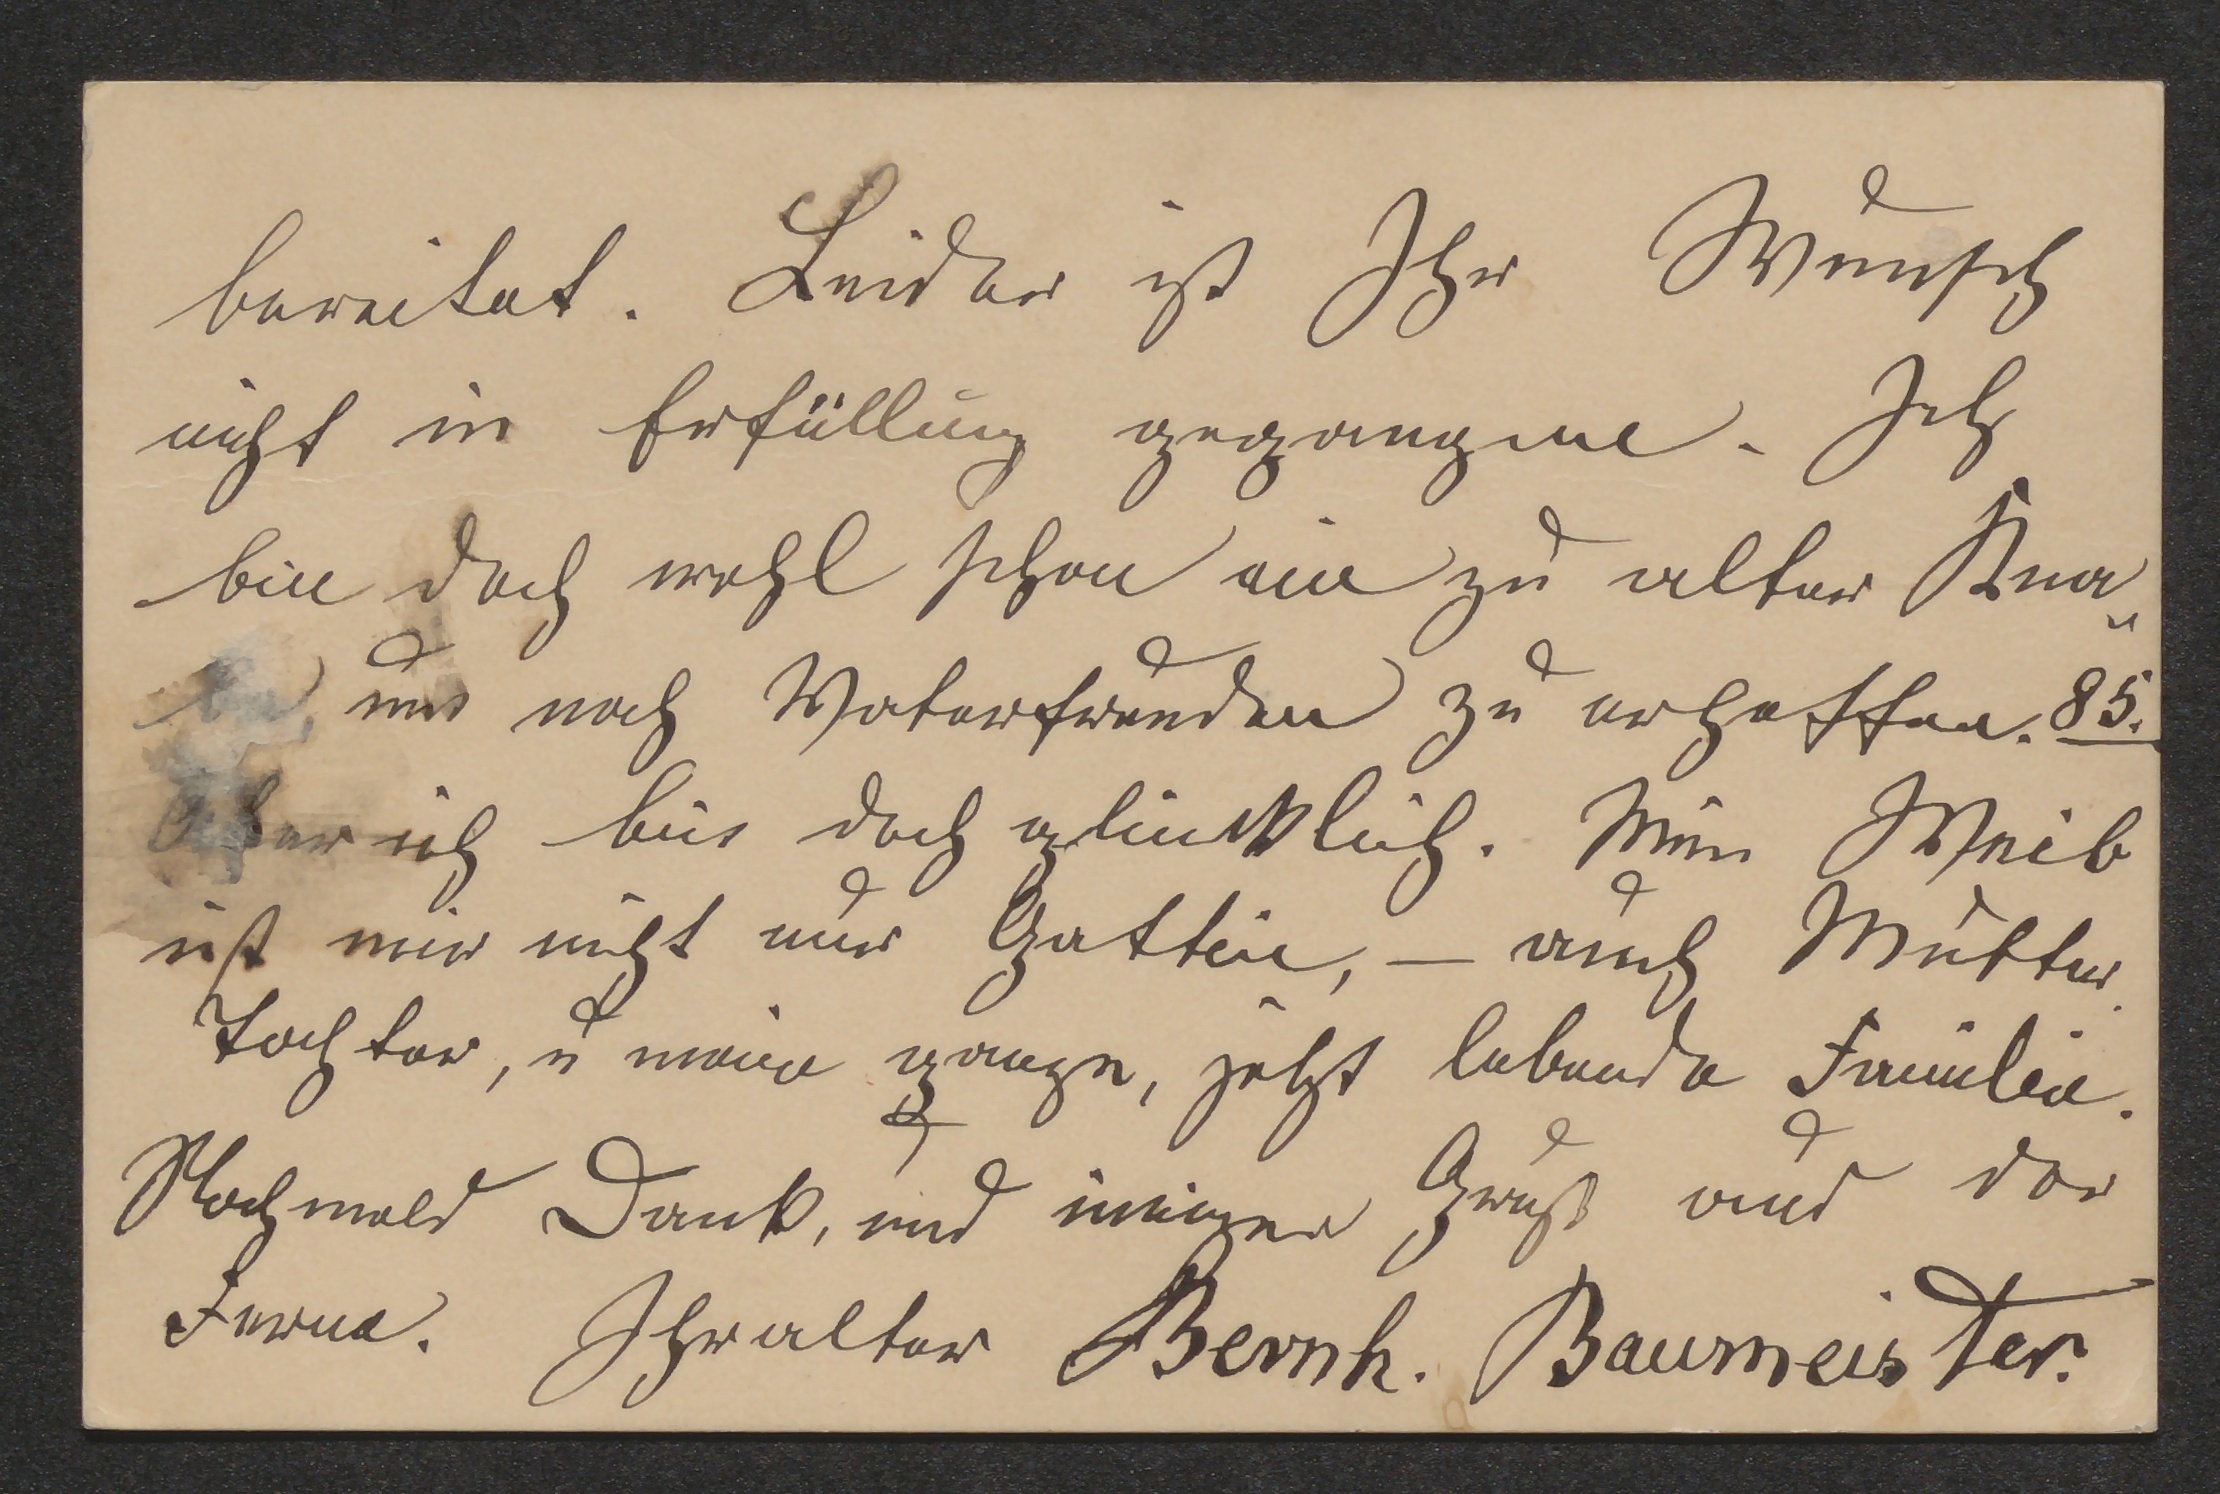 bereitet. Leider ist Ihr Wunsch
nicht in Erfüllung gegangen. Ich
bin doch wohl schon ein zu alter Kna„
be, um noch Vaterfreuden zu erhoffen. 85.
Aber ich bin doch glücklich. Mein Weib
ist mir nicht nur Gattin, – auch Mutter
Tochter, u meine ganze, jetzt lebende Familie.
Nochmals Dank, und inniger Gruß aus der
Ferne. Ihr alter Bernh. Baumeister.